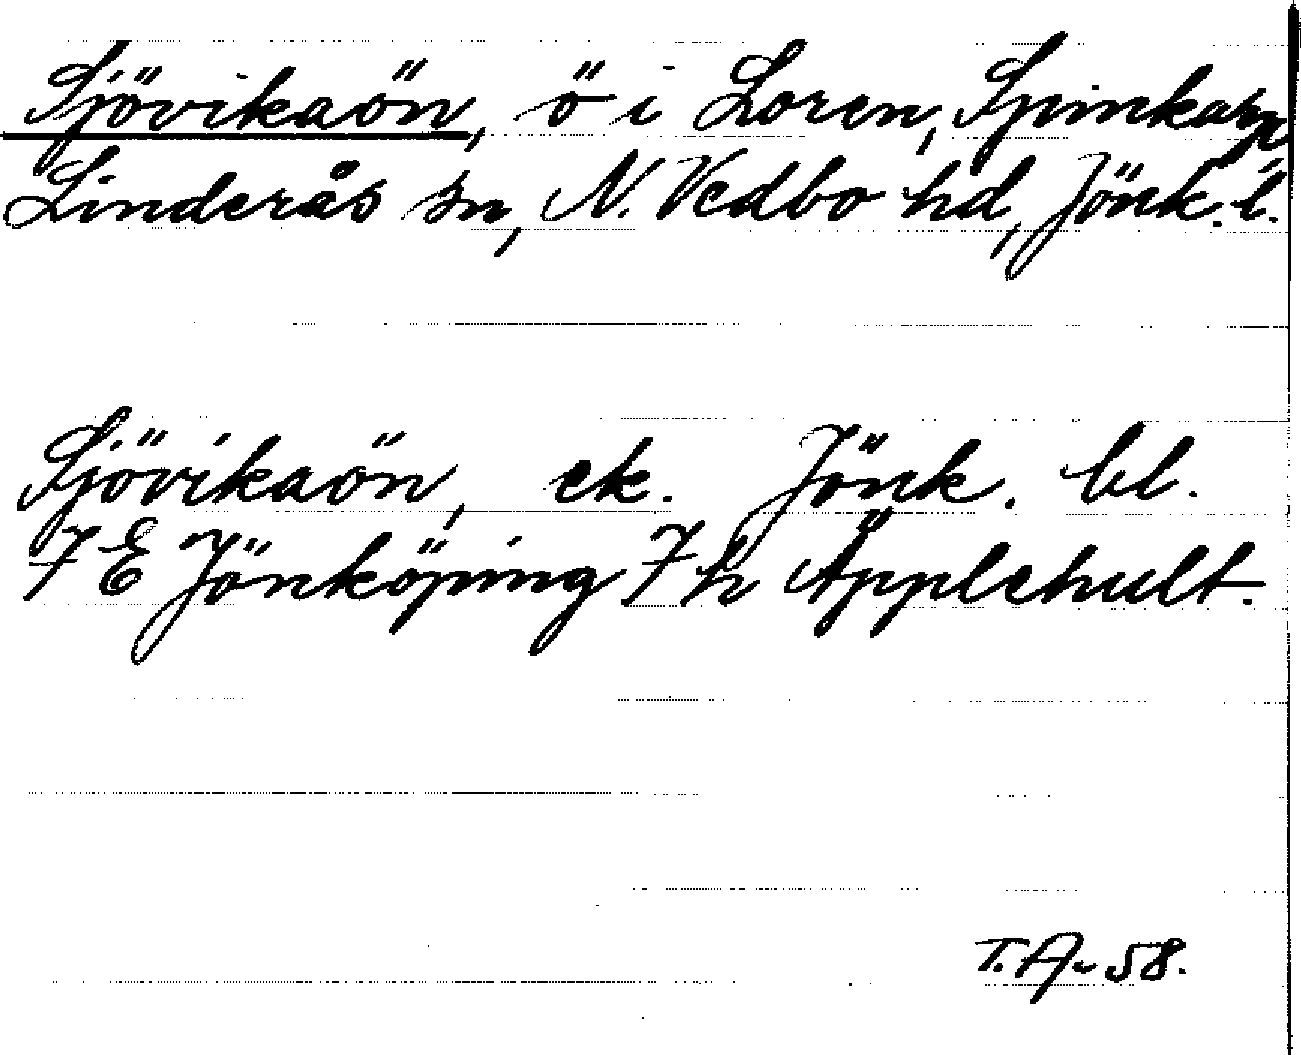 Sjövikaön, ö i Loren, Spinkarp
Linderås sn, N. Vedbo hd, Jönk. l.
Sjövikaön, ek. Jönk. bl.
7 E Jönköping 7 h Äpplehult.
T.A. 58.